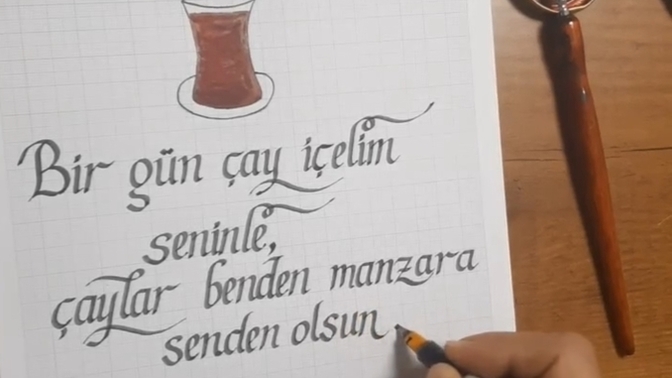 Bir gün çay içelim
seninle,
çaylar benden manzara
senden olsun